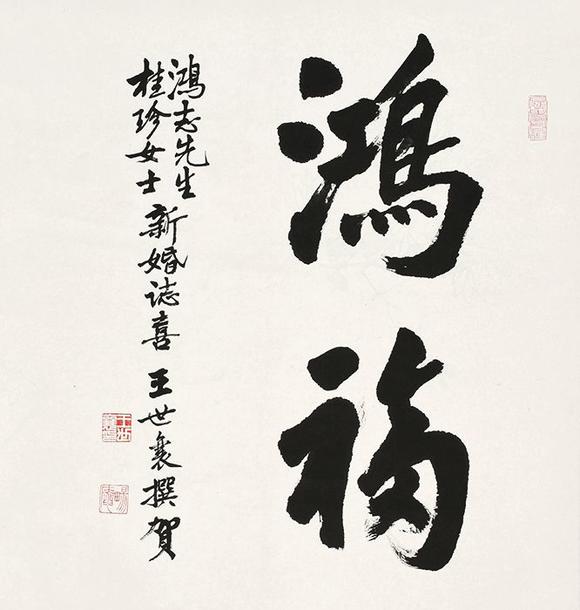 鸿福
鸿志先生
桂珍女士
新婚誌喜 王世襄撰賀